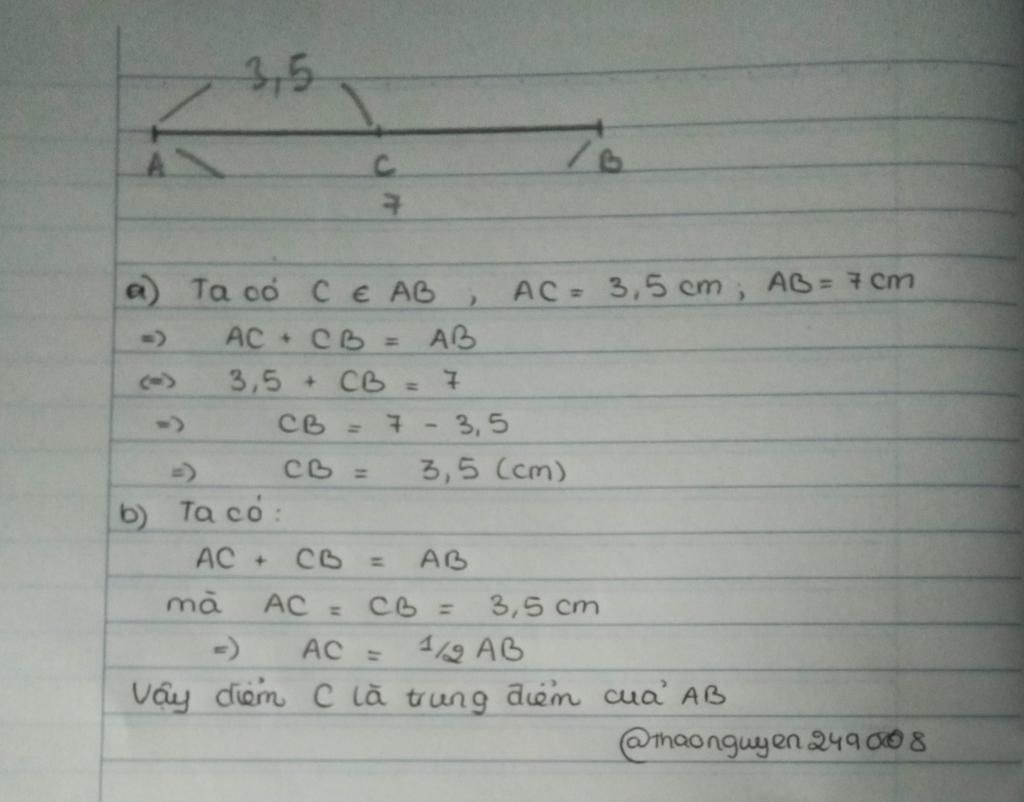 3,5
A C B
7
a) Ta có C ∈ AB , AC = 3,5 cm ; AB = 7 cm
=) AC + CB = AB
(=) 3,5 + CB = 7
=) CB = 7 - 3,5
=) CB = 3,5 (cm)
b) Ta có :
AC + CB = AB
mà AC = CB = 3,5 cm
=) AC = 1/2 AB
Vậy điểm C là trung điểm của AB